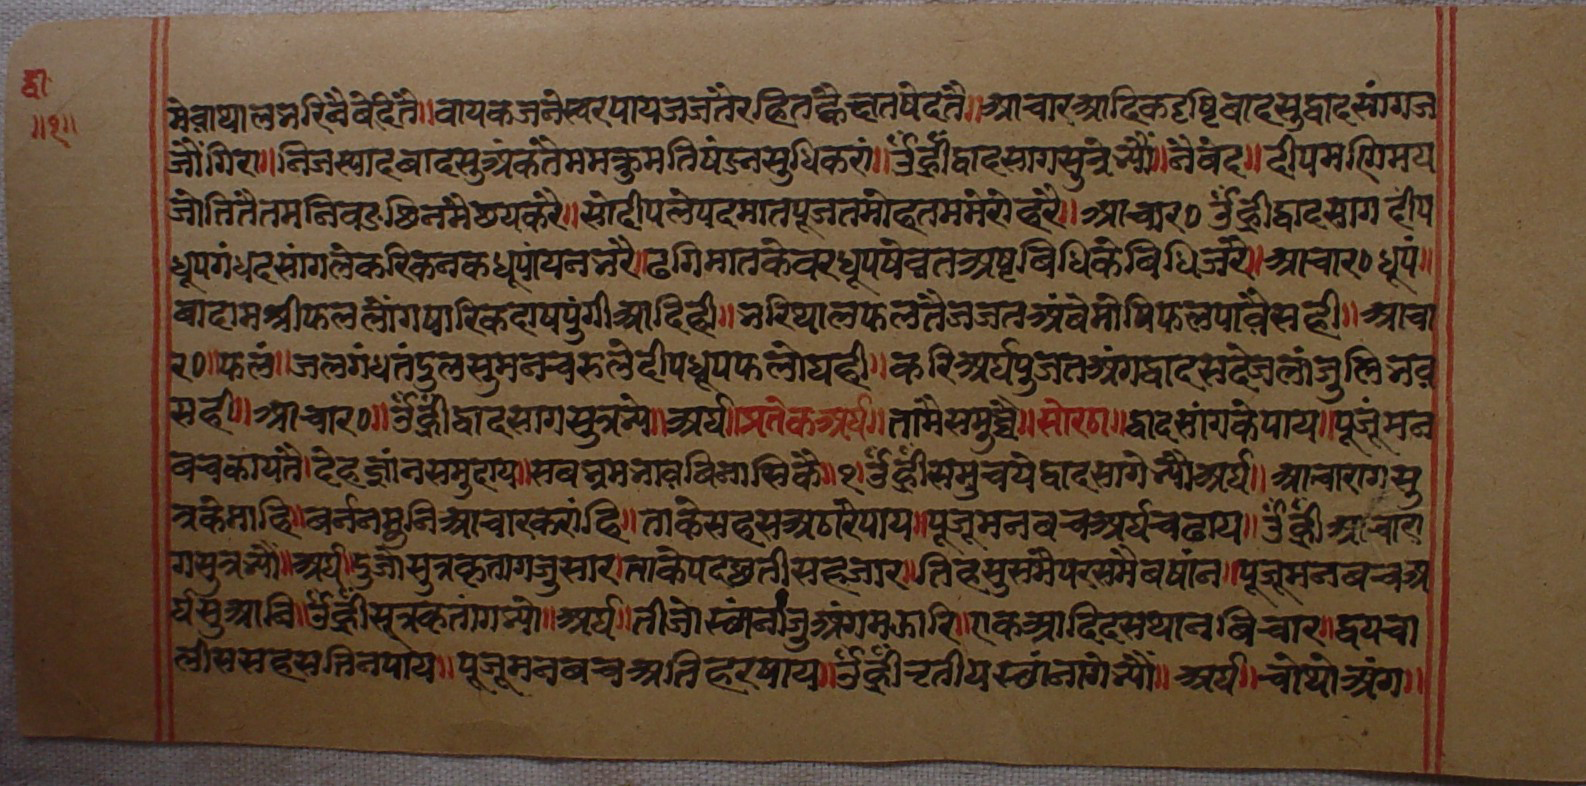 द्वा
॥२॥
मेवाथालभरिनैवेदितै॥वायकजनेस्वरपायजजतैरहितव्हैछातषेदतै॥आचारआदिकदृष्टिवादसुद्वादसांगज
जौंगिरा॥निजस्वादवादसुअंकतैममकुमतिषंडनसुधिकरा॥ॐह्रीद्वादसागसुत्रेभ्यौ॥नैवेद॥दीपमणिमय
जोतितैतमनिवडछिनमैछयकरै॥सोदीपलेपदमातपूजतमोहतमममेरोहरै॥आचार०ॐह्रीद्वादसागदीप
धूपगंधदसांगलेकरिकनकधूपांयनभरै॥ढगिमातकेवरधूपषेवतअष्टविधिकेविधिजरै॥आचार०धूपं॥
बादामश्रीफललौंगषारिकदाषपुंगीआदिही॥भरिथालफलतैजजतअंवेमोषिफलपावैसही॥आचा
र०॥फलं॥जलगंधतंदुलसुमनचरुलेदीपधूपफलोघही॥करिअर्घपुजतअंगद्वादसदेजलांजुलिभव
सही॥आचार०॥ॐह्रींद्वादसागसुत्रभ्ये॥अर्घ॥प्रतेकअर्घ॥तामैसमुच्चै॥सोरठा॥द्वादसांगकेपाय॥पूजूंमन
बचकायतै॥देहज्ञांनसमुदाय॥सबभ्रमभावविनासिकै॥१॥ॐह्रींसमुचयेद्वादसागेभ्यौअर्घ॥आचारागसु
त्रकेमाहि॥बर्ननमुनिआचारकरांहि॥ताकेसहसअठारैपाय॥पूजूमनबचअर्घचढाय॥ॐह्रींआचारा
गसुत्रभ्यौं॥अर्घ॥दुजोसुत्रकृतागजुसार॥ताकेपदछतीसहजार॥तिहसुसमैपरसमैबषांन॥पूजूमनबचअ
र्घसुआंनि॥ॐह्रींसूत्रकृतांगभ्यो॥अर्घ॥तीजोस्थांनांजुअंगमझारि॥एकआदिदसथानबिचार॥द्वयचा
लीससहसतिनपाय॥पूजूमनबचअतिहरषाय॥ॐह्रींतृतीयस्थांनागेभ्यौं॥अर्घ॥चोथोअंग॥